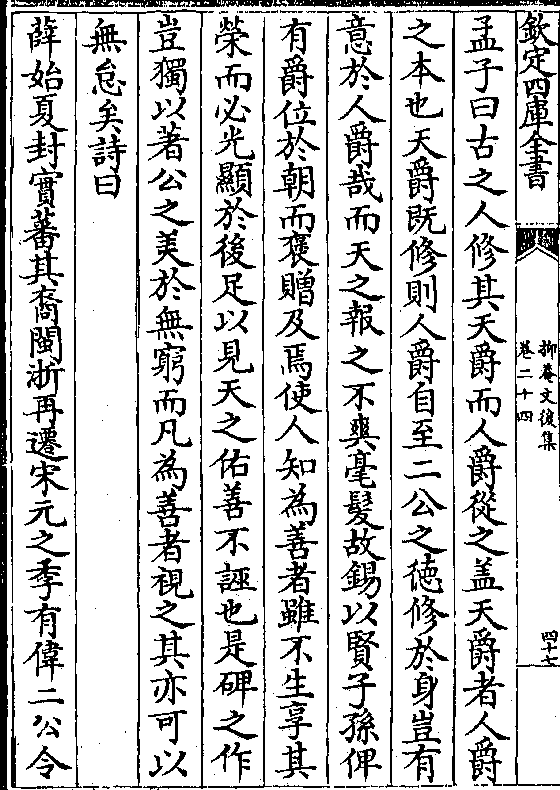 欽定四庫全書
抑菴文後集
卷二十四
四十七
孟子曰古之人修其天爵而人爵從之盖天爵者人爵
之本也天爵既修則人爵自至二公之徳修於身豈有
意於人爵哉而天之報之不爽毫髮故錫以賢子孫俾
有爵位於朝而褒贈及焉使人知為善者雖不生享其
榮而必光顯於後足以見天之佑善不誣也是碑之作
豈獨以著公之美於無窮而凡為善者視之其亦可以
無怠矣詩曰
薛始夏封實蕃其裔閩浙再遷宋元之季有偉二公令